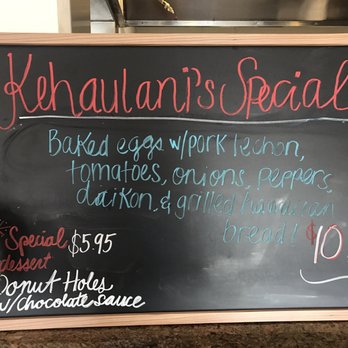 Kehaulani's Special
Baked eggs w/pork lechon,
tomatoes, onions, peppers,
daikon, & grilled hawaiian
bread! $10
*Special $5.95
dessert
Donut Holes
w/chocolate sauce